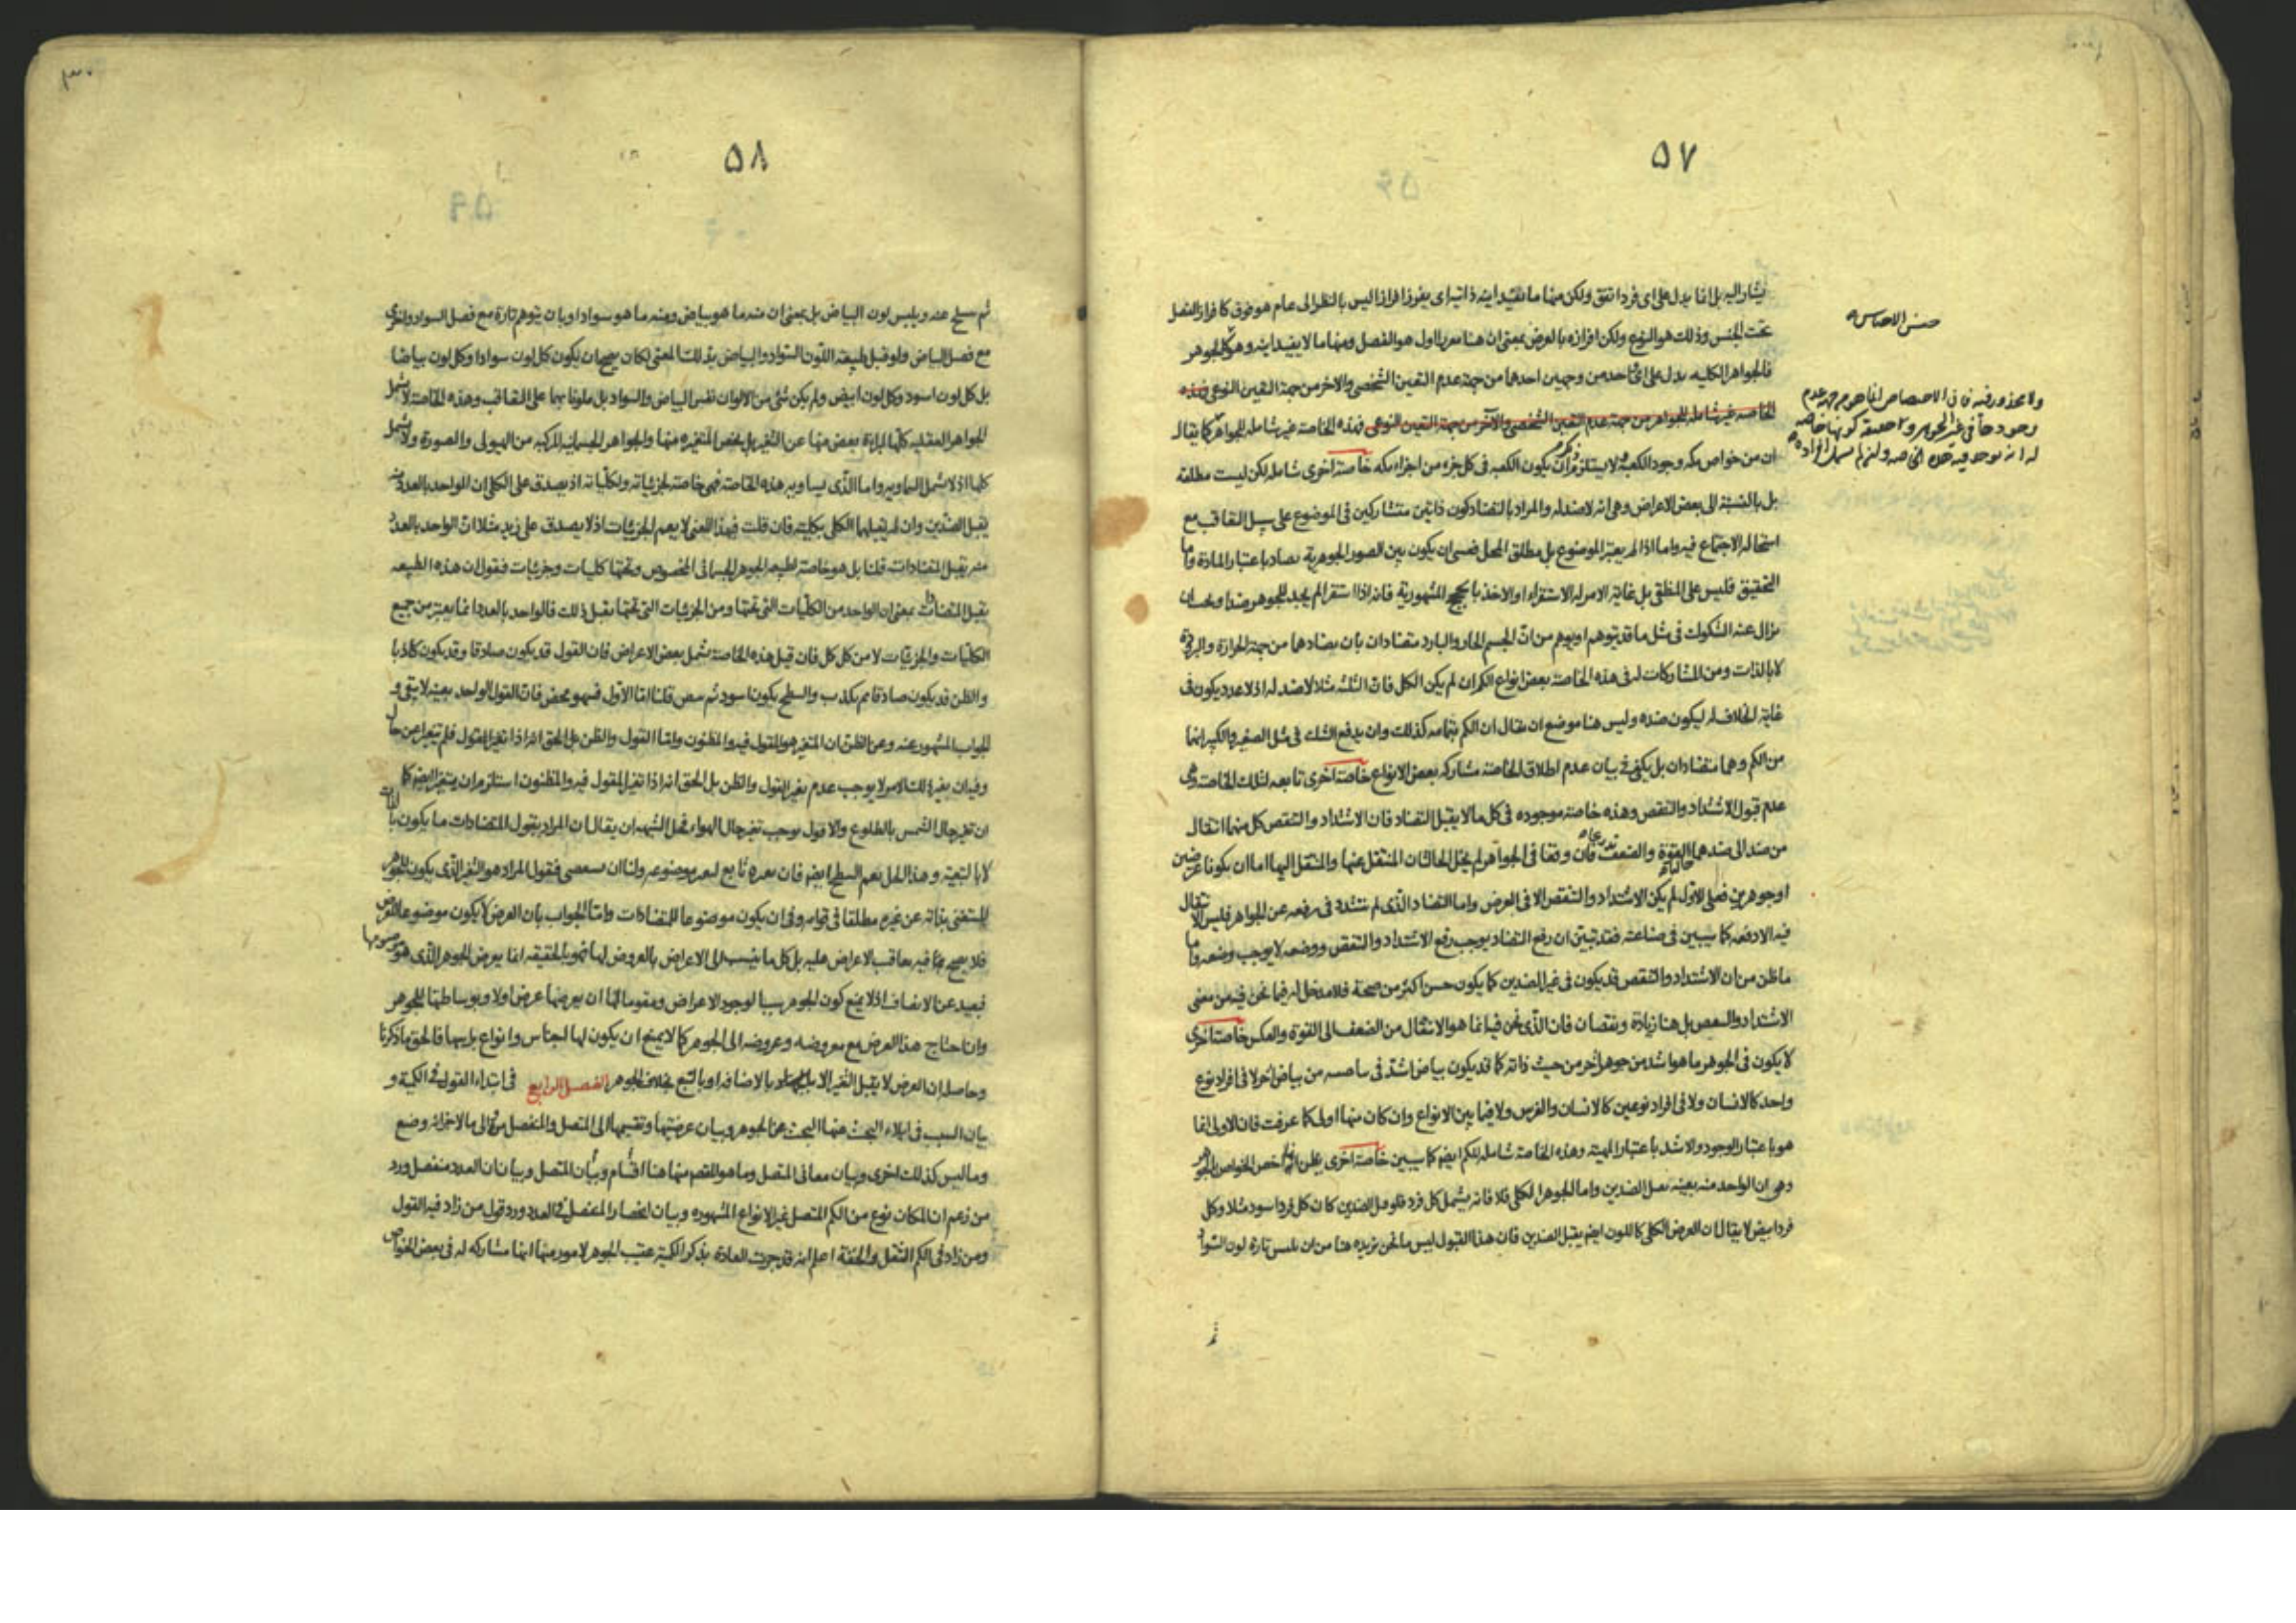 ٥٧
يشار اليه بل انما يدل على اى فرد اتفق ولكن منها ما تفيد اينه ذاتيه اى يفرز افرازا ليس بالنظر الى عام هو فوق كافراز الفصل
تحت الجنس وذلك هو النوع ولكن افرازه بالعرض بمعنى ان هنا معرزا اول هو الفصل ومنها ما لا يفيد اينه وهو الجوهر
فالجواهر الكليه يدل على اى احد من وجهين احدهما من جهة عدم التعين الشخصى والاخر من جهة التعين النوعى فهذه
الخاصه غير شامله للجواهر من جهة عدم التعين الشخصى والآخر من جهة التعين النوعى فهذه الخاصة غير شاملة للجواهر كما يقال
ان من خواص مكه وجود الكعبة ولا يستلزم ان يكون الكعبه فى كل جزء من اجزاء مكه خاصة اخرى شاملة لكن ليست مطلقة
بل بالنسبة الى بعض الاعراض وهى انه لا ضد له والمراد بالتضاد كون ذاتين متشاركين فى الموضوع على سبيل التعاقب مع
استحالة الاجتماع فيه واما اذا لم يعتبر الموضوع بل مطلق المحل فعسى ان يكون بين الصور الجوهرية تضاد باعتبار المادة واما
التحقيق فليس على المنطقى بل غاية الامر له الاستقراء او الاخذ بالحجج المشهورية فانه اذا استقرا لم يجد للجوهر ضدا ويحب ان
يزال عنه الشكوك فى مثل ما قد يتوهم او يوهم من ان الجسم الحار والبارد متضادان بان تضادهما من جهة الحرارة والبرودة
لا بالذات ومن المشاركات له فى هذه الخاصة بعض انواع الكم ان لم يكن الكل فان الثلثه مثلا لا ضد له اذ لا عدد يكون فى
غاية الخلاف له ليكون ضده وليس هنا موضع ان يقال ان الكم بتمامه كذلك وان يدفع الشك فى مثل الصغير والكبير انهما
من الكم وهما متضادان بل يكفى فى بيان عدم اطلاق الخاصة مشاركه بعض الانواع خاصة اخرى تابعه لتلك الخاصة وهى
عدم قبول الاشتداد والتنقص وهذه خاصة موجوده فى كل ما لا يقبل التضاد فان الاشتداد والتنقص كل منهما انتقال
من ضد الى ضد هما القوة والضعف فان وقعا فى الجواهر لم يخل الحالتان المنتقل عنها والمنتقل اليها اما ان يكونا عرضين
او جوهرين فعلى الاول لم يكن الاشتداد والتنقص الا فى العرض واما التضاد الذى لم نتشدد فى رفعه عن الجواهر فليس الانتقال
فيه الا دفعه كما يبين فى صناعة فقد تبين ان رفع التضاد يوجب رفع الاشتداد والتنقص ووضعه لا يوجب وضعه واما
ما ظن من ان الاشتداد والتنقص قد يكون فى غير الضدين كما يكون حسن اكثر من صحة فلا مدخل له فيما نحن فيه من معنى
الاشتداد والتنقص بل هنا زيادة ونقصان فان الذى نحن فيه انما هو الانتقال من الضعف الى القوة والعكس خاصة اخرى
لا يكون فى الجوهر ما هو اشد من جوهر آخر من حيث ذاته كما قد يكون بياض اشد فى بياضيته من بياض آخر لا فى افراد نوع
واحد كالانسان ولا فى افراد نوعين كالانسان والفرس ولا فيما بين الانواع وان كان منها اولى كما عرفت فان الاولى انما
هو باعتبار الوجود والاشد باعتبار المهية وهذه الخاصة شاملة للكم ايضا كما يبين خاصة اخرى يظن انها اخص الخواص بالجوهر
وهى ان الواحد منه بعينه يقبل الضدين واما الجوهر الكلى فلا فانه يشمل كل فرد فلو قبل الضدين كان كل فرد اسود مثلا وكل
فرد ابيض لا يقال ان العرض الكلى كاللون ايضا يقبل الضدين فان هذا القبول ليس ما نحن نريده هنا من ان يلبس تارة لون السواد
ثم
ولا محذور فيه فان الاختصاص انما هو من جهة عدم
وجودها فى غير الجوهر
٥٨
ثم ينسلخ عنه ويلبس لون البياض بل بمعنى ان منه ما هو بياض ومنه ما هو سواد او بان يتوهم تارة مع فصل السواد واخرى
مع فصل البياض ولو قبل طبيعة اللون السواد والبياض بذلك المعنى لكان يصح ان يكون كل لون سوادا وكل لون بياضا
بل كل لون اسود وكل لون ابيض ولم يكن شئ من الالوان نفس البياض والسواد بل ملونا بهما على التعاقب وهذه الخاصة لا يشمل
الجواهر العقليه كلها لبراءة بعض منها عن التغير بل يخص المتغيره منها والجواهر الجسمانيه المركبه من الهيولى والصورة ولا يشمل
كلها اذ لا يشمل السماويه واما الذى يساويه هذه الخاصة فهى خاصة لجزئياته ولكلياته اذ يصدق على الكلى ان الواحد بالعدد منه
يقبل الضدين وان لم يقبلهما الكلى بكليته فان قلت فهذا المعنى لا يعم الجزئيات اذ لا يصدق على زيد مثلا ان الواحد بالعدد
منه يقبل المتضادات قلنا بل هو خاصة لطبيعة الجوهر الجسمانى المخصوص وتحتها كليات وجزئيات فنقول ان هذه الطبيعه
يقبل المتضادات بمعنى ان الواحد من الكليات التى تحتها ومن الجزئيات التى تحتها يقبل ذلك فالواحد بالعدد انما يعتبر من جميع
الكليات والجزئيات لا من كل كل فان قيل هذه الخاصة تشمل بعض الاعراض فان القول قد يكون صادقا وقد يكون كاذبا
والظن قد يكون صادقا ثم يكذب والسطح يكون اسود ثم يبيض قلنا اما الاول فسهو محض فان القول الواحد بعينه لا يبقى و
الجواب المشهور عنه وعن الظن ان المتغير هو المقول فيه والمظنون واما القول والظن بل الحق انه اذا تغير المقول فلم يتغير عن حال
وفيه ان تغير ذلك الامر لا يوجب عدم تغير القول والظن بل الحق انه اذا تغير المقول فيه والمظنون استلزم ان يتغير ايضا كما
ان تغير حال الشمس بالطلوع والافول يوجب تغير حال الهواء فحل الشبهه ان يقال ان المراد بقبول المتضادات ما يكون بالذات
لا بالتبعية وهذا الحل يعم السطح ايضا فان تغيره تابع لتغير موضوعه ولنا ان نستقصى فنقول المراد هو التغير الذى يكون للجوهر
المستغنى بذاته عن غيره مطلقا فى قوامه وفى ان يكون موضوعا للمتضادات واما الجواب بان العرض لا يكون موضوعا للعرض
فلا يصح فيه تعاقب الاعراض عليه بل كل ما ينسب الى الاعراض بالعروض لها فهو بالحقيقه انما يعرض للجوهر الذى هو موضوعها
فبعيد عن الانصاف اذ لا يمنع كون الجوهر سببا لوجود الاعراض ومقوما لها ان يعرضها عرض اولا وبوساطتها للجوهر
وان احتاج هذا العرض مع معروضه وعروضه الى الجوهر كما لا يمنع ان يكون لها اجناس وانواع بل يها فالحق ما ذكرنا
وحاصله ان العرض لا يقبل التغير الا بالاضافه او بالتبع بخلاف الجوهر الفصل الرابع فى ابتداء القول فى الكمية و
بيان السبب فى ايلاء البحث عنها البحث عن الجوهر وبيان عرضيتها وتقسيمها الى المتصل والمنفصل مرة والى ما لاجزائه وضع
وما ليس كذلك اخرى وبيان معانى المتصل وما هو المقصود منها هنا اقسام وبيان المتصل وبيان ان العدد منفصل ورد
من زعم ان المكان نوع من الكم المتصل غير الانواع المشهوره وبيان انحصار المنفصل فى العدد ورد قول من زاد فيه القول
ومن زاد فى الكم الثقل والخفة اعلم انه قد جرت العادة بذكر الكمية عقيب الجوهر لامور منها انها مشاركة له فى بعض الخواص